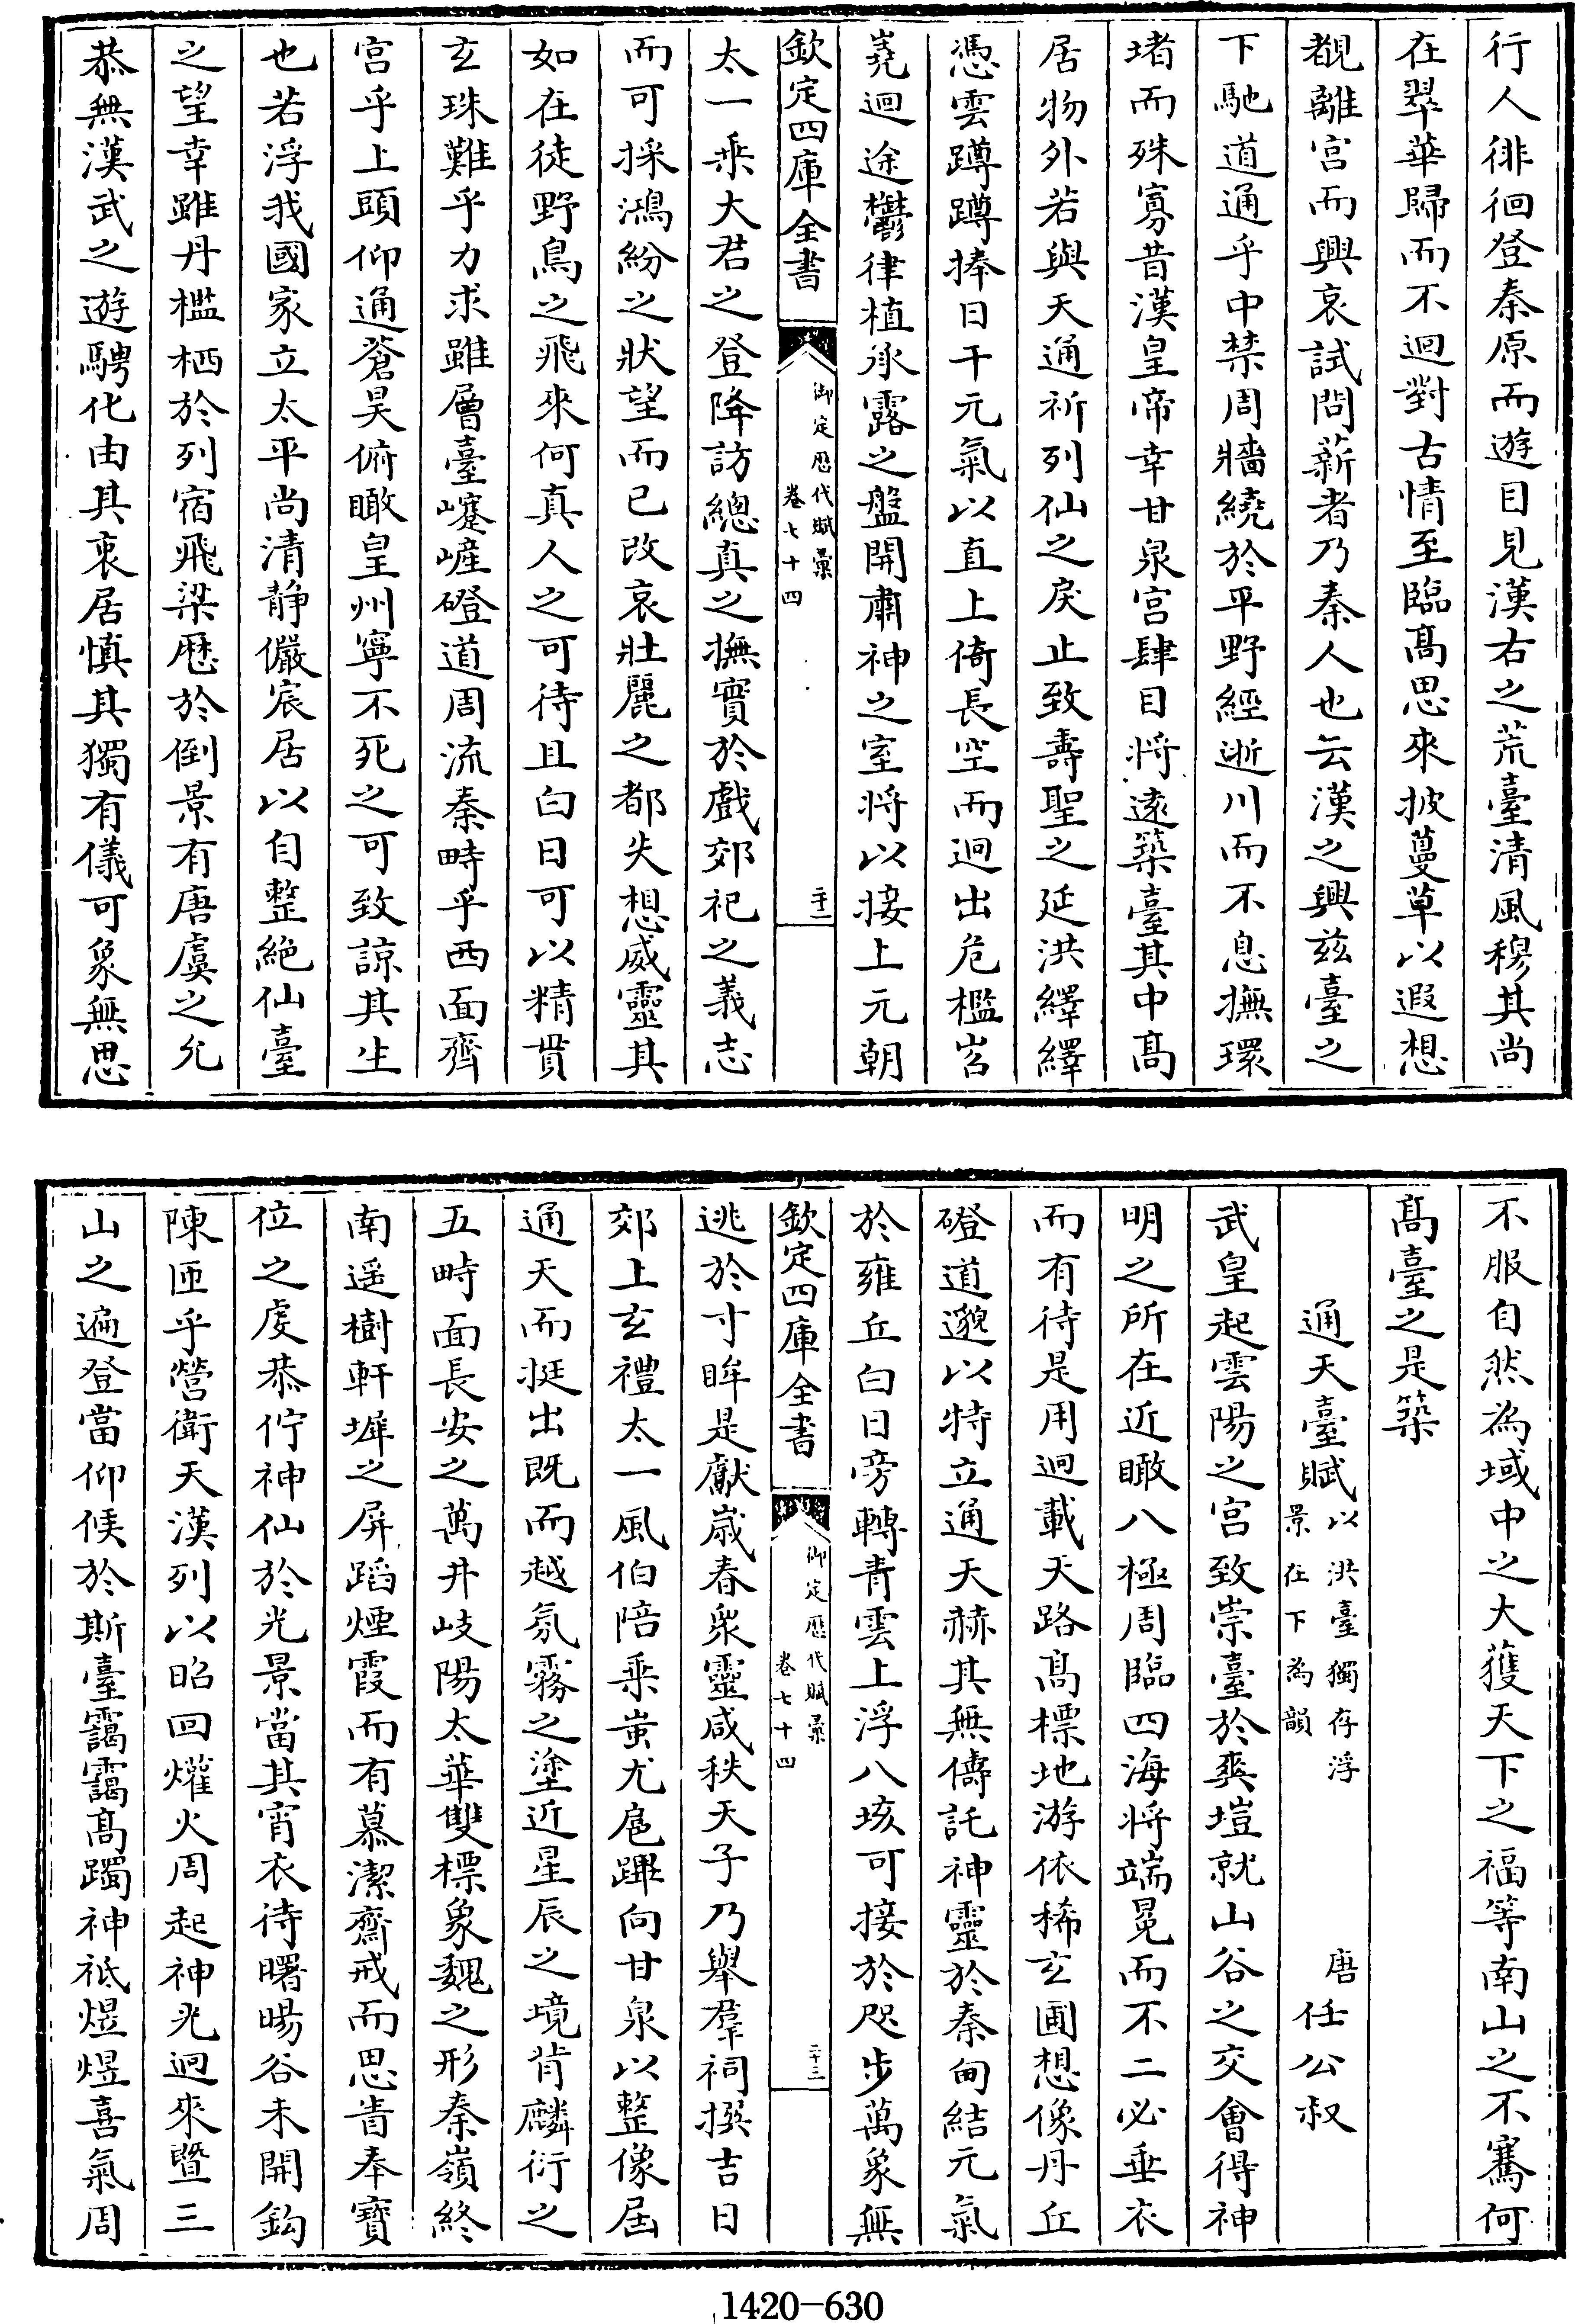 行人徘徊登秦原而遊目見漢右之荒臺清風穆其尚
在翠華歸而不迴對古情至臨髙思來披蔓草以遐想
覩離宫而興哀試問薪者乃秦人也云漢之興兹臺之
下馳道通乎中禁周牆繞於平野經逝川而不息撫環
堵而殊寡昔漢皇帝幸甘泉宫肆目將遠築臺其中髙
居物外若與天通祈列仙之戾止致壽聖之延洪繹繹
憑雲蹲蹲捧日干元氣以直上倚長空而迥出危檻岧
嶤迴途鬱律植承露之盤開肅神之室將以接上元朝
欽定四庫全書
御定歴代賦彙
卷七十四
二十二
太一乘大君之登降訪總真之撫實於戲郊祀之義志
而可採鴻紛之狀望而已改哀壯麗之都失想威靈其
如在徒野鳥之飛來何真人之可待且白日可以精貫
玄珠難乎力求雖層臺嶻嵼磴道周流秦畤乎西面齊
宫乎上頭仰通蒼昊俯瞰皇州寧不死之可致諒其生
也若浮我國家立太平尚清靜儼宸居以自整絶仙臺
之望幸雖丹檻栖於列宿飛梁歴於倒景有唐虞之允
恭無漢武之遊騁化由其衷居慎其獨有儀可象無思
不服自然為域中之大獲天下之福等南山之不騫何
髙臺之是築
通天臺賦以洪臺獨存浮景在下為韻
唐任公叔
武皇起雲陽之宫致崇臺於爽塏就山谷之交會得神
明之所在近瞰八極周臨四海將端冕而不二必垂衣
而有待是用迥載天路髙標地游依稀玄圃想像丹丘
磴道邈以特立通天赫其無儔託神靈於秦甸結元氣
於雍丘白日旁轉青雲上浮八垓可接於咫步萬象無
欽定四庫全書
御定歴代賦彙
卷七十四
二十三
逃於寸眸是獻嵗春衆靈咸秩天子乃舉羣祠撰吉日
郊上玄禮太一風伯陪乘蚩尤扈蹕向甘泉以整像屆
通天而挺出既而越氛霧之塗近星辰之境背麟衍之
五畤面長安之萬井岐陽太華雙標象魏之形秦嶺終
南遥樹軒墀之屏蹈煙霞而有慕潔齋戒而思眚奉寶
位之虔恭佇神仙於光景當其宵衣待曙暘谷未開鈎
陳匝乎營衛天漢列以昭回爟火周起神光迴來曁三
山之遍登當仰候於斯臺靄靄髙躅神祗煜煜喜氣周
1420-630